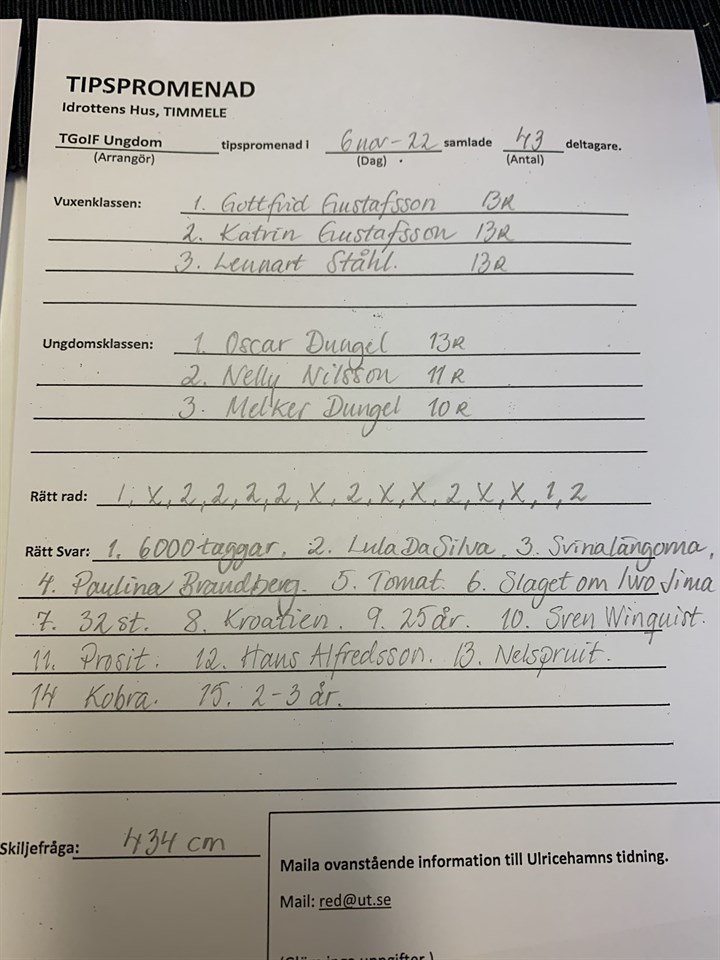 TIPSPROMENAD
Idrottens Hus, TIMMELE
TGoIF Ungdom tipspromenad i 6 nov - 22 samlade 43 deltagare.
(Arrangör) (Dag) (Antal)
Vuxenklassen: 1. Gottfrid Gustafsson 13R
2. Katrin Gustafsson 13R
3. Lennart Ståhl. 13R
Ungdomsklassen: 1. Oscar Dungel 13R
2. Nelly Nilsson 11R
3. Melker Dungel 10R
Rätt rad: 1, X, 2, 2, 2, 2, X, 2, X, X, 2, X, X, 1, 2
Rätt Svar: 1. 6000 taggar, 2. Lula Da Silva, 3. Svinalängorna,
4. Paulina Brandberg. 5. Tomat. 6. Slaget om Iwo Jima
7. 32 st. 8. Kroatien. 9. 25 år. 10. Sven Winquist.
11. Prosit. 12. Hans Alfredsson. 13. Nelspruit.
14 Kobra. 15. 2-3 år.
Skiljefråga: 434 cm
Maila ovanstående information till Ulricehamns tidning.
Mail: red@ut.se